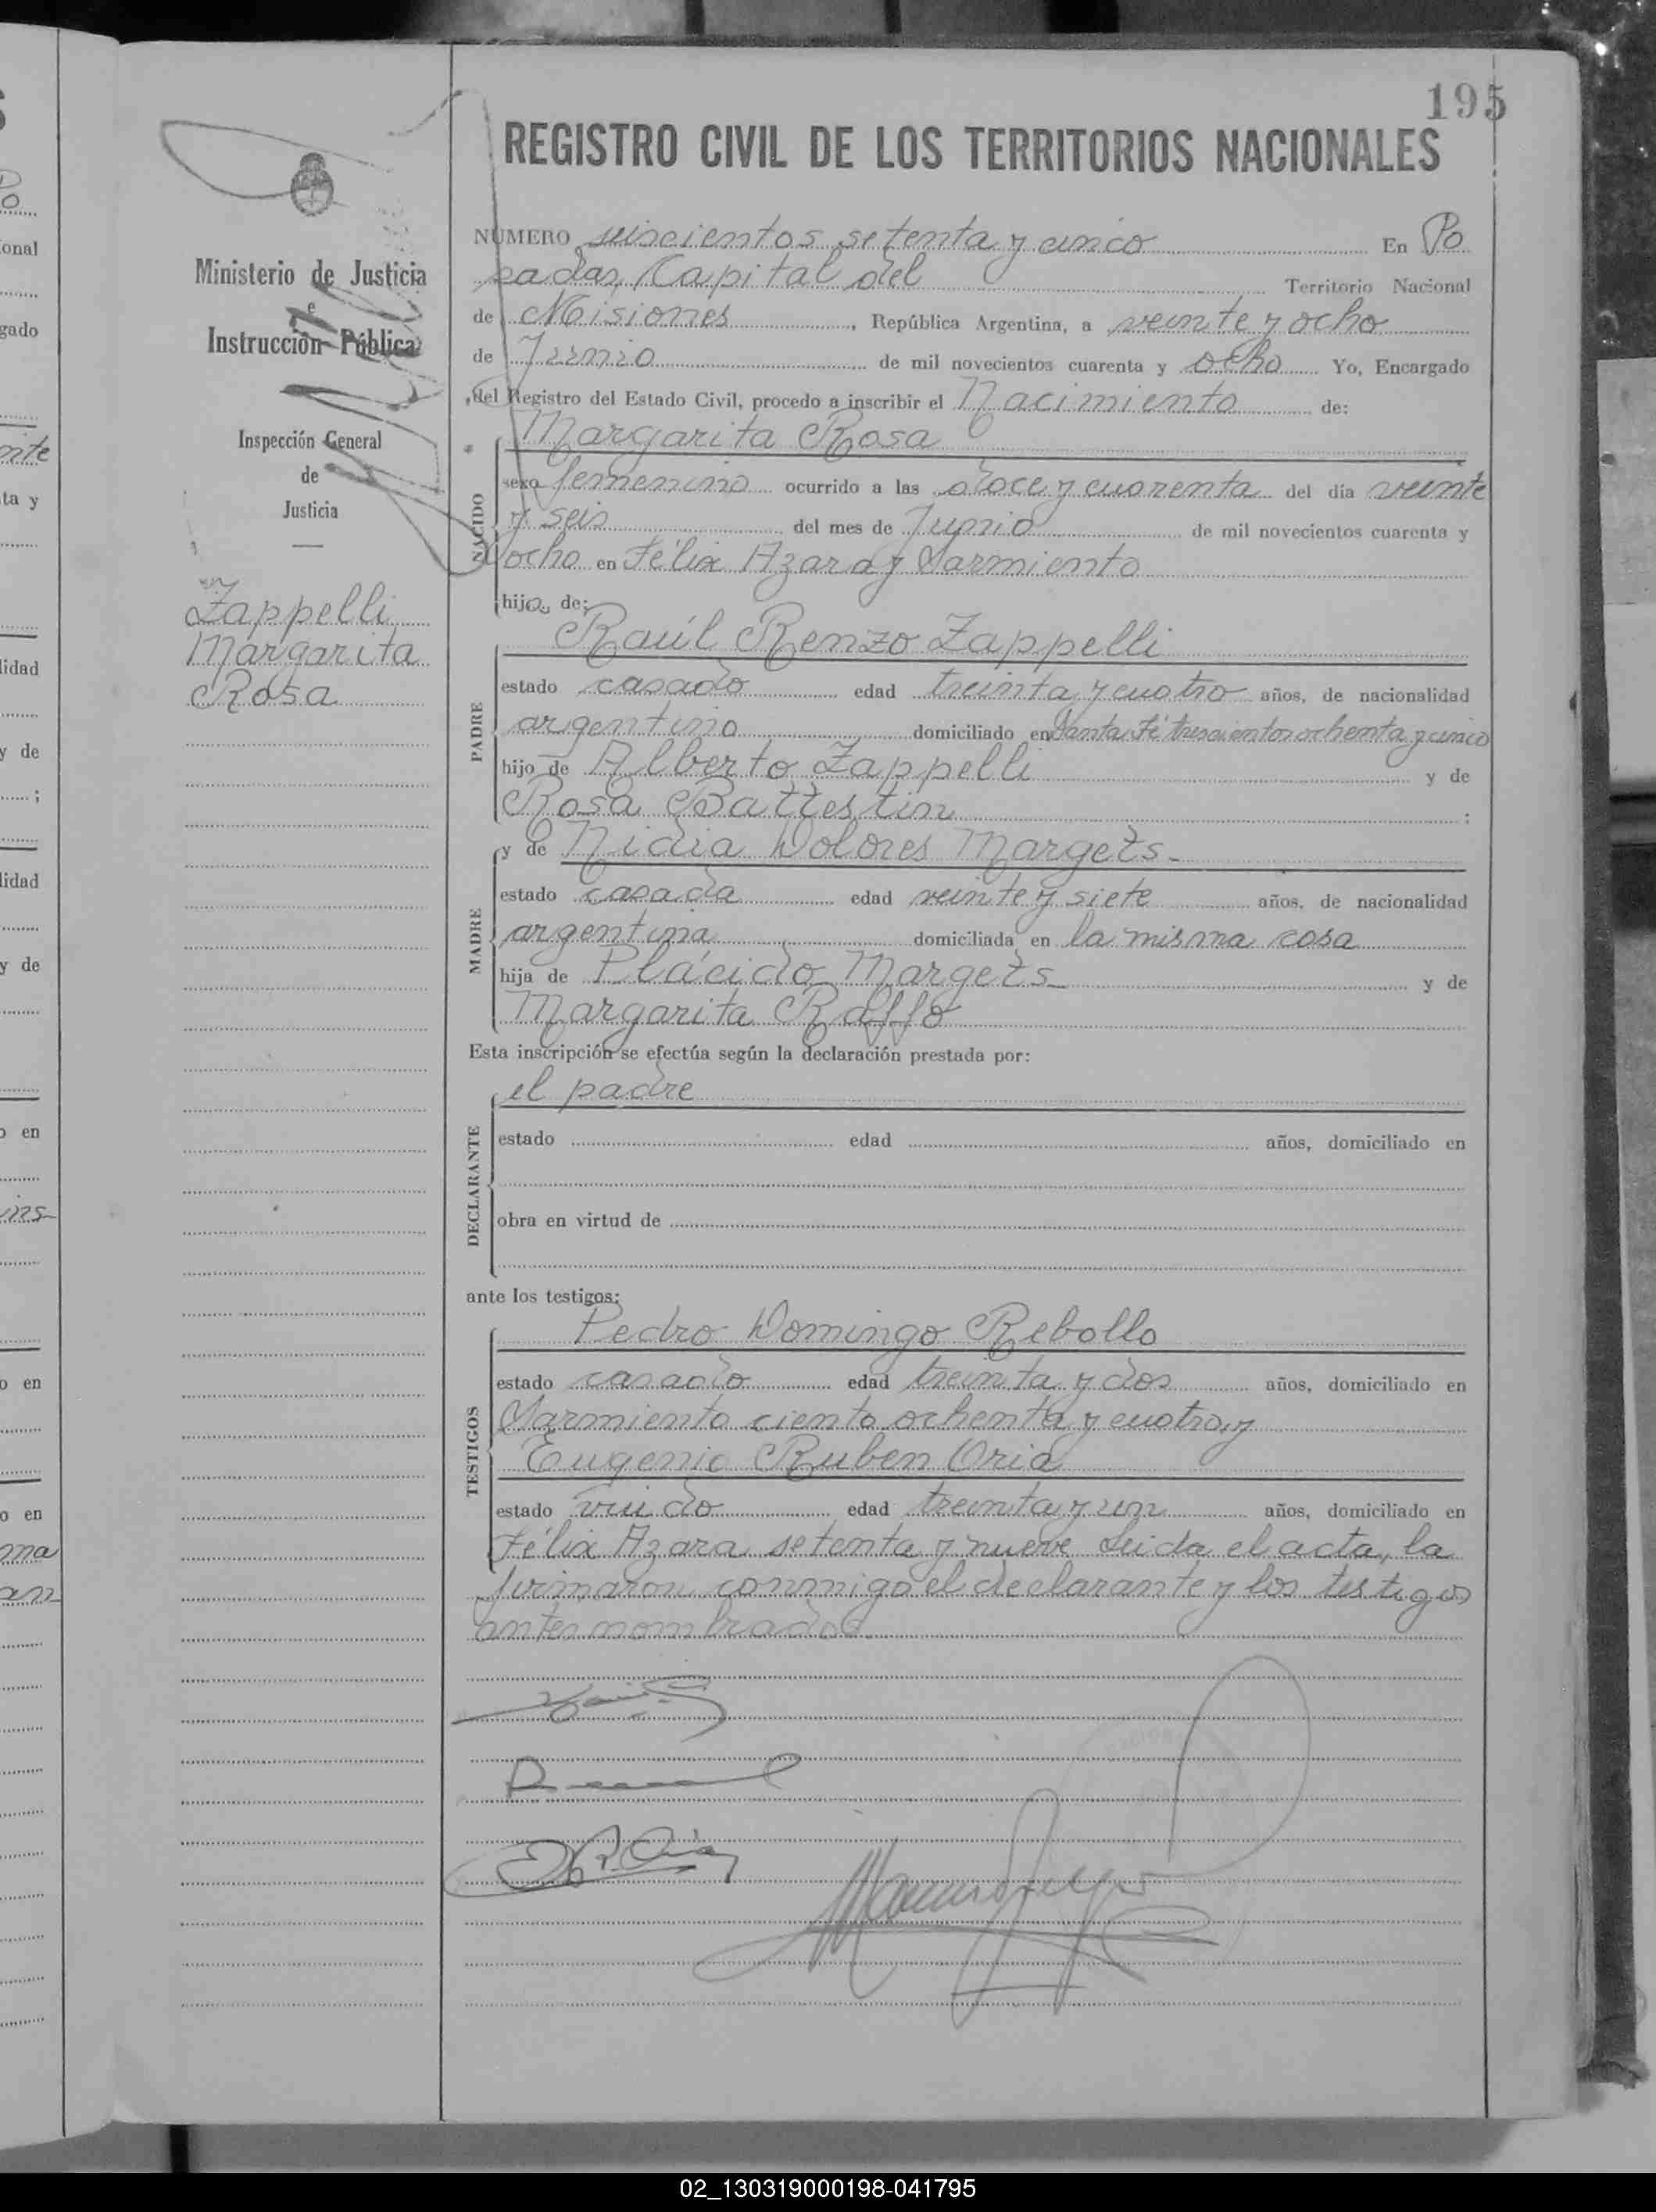 195
REGISTRO CIVIL DE LOS TERRITORIOS NACIONALES
Ministerio de Justicia
e
Instrucción Pública
Inspección General
de
Justicia
Zappelli
Margarita
Rosa
NÚMERO seiscientos setenta y cinco En Po
sadas, Capital del Territorio Nacional
de Misiones, República Argentina, a veinte y ocho
de Junio de mil novecientos cuarenta y ocho Yo, Encargado
del Registro del Estado Civil, procedo a inscribir el Nacimiento de:
Margarita Rosa
NACIDO
sexo femenino ocurrido a las doce y cuarenta del día veinte
y seis del mes de Junio de mil novecientos cuarenta y
ocho en Félix Azara y Sarmiento
hija de:
Raúl Renzo Zappelli
PADRE
estado casado edad treinta y cuatro años, de nacionalidad
argentino domiciliado en Santa Fé trescientos ochenta y cinco
hijo de Alberto Zappelli y de
Rosa Battestin ;
y de Nidia Dolores Margets-
MADRE
estado casada edad veinte y siete años, de nacionalidad
argentina domiciliada en la misma casa
hija de Plácido Margets- y de
Margarita Raffo
Esta inscripción se efectúa según la declaración prestada por:
el padre
DECLARANTE
estado edad años, domiciliado en
obra en virtud de
ante los testigos:
Pedro Domingo Rebollo
TESTIGOS
estado casado edad treinta y dos años, domiciliado en
Sarmiento ciento ochenta y cuatro, y
Eugenio Ruben Oria
estado viudo edad treinta y un años, domiciliado en
Félix Azara setenta y nueve Leida el acta, la
firmaron conmigo el declarante y los testigos
antes nombrados.
02_130319000198-041795